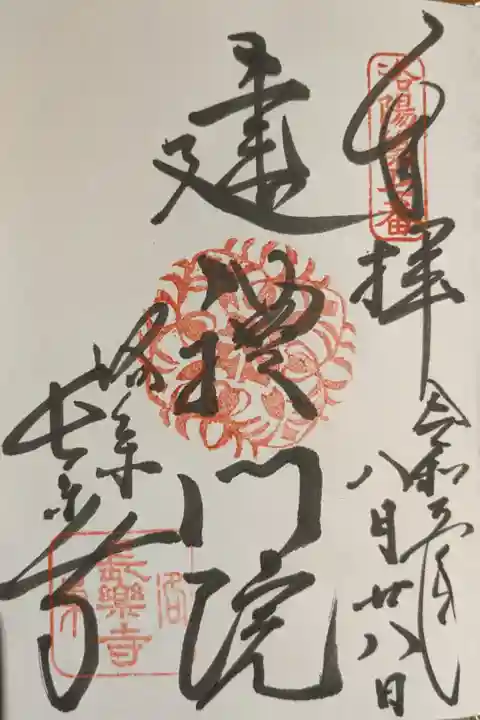 奉拝
令和五年
八月廿八日
建礼門院
洛東
長楽寺
洛陽
番
長樂寺